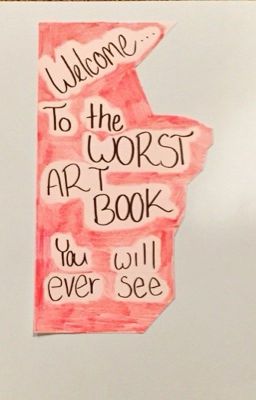 Welcome...
To the
WORST
ART
BOOK
You will
ever see